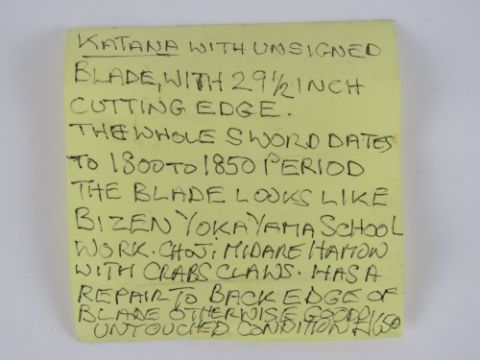 KATANA WITH UNSIGNED
BLADE, WITH 29 1/2 INCH
CUTTING EDGE.
THE WHOLE SWORD DATES
TO 1800 TO 1850 PERIOD
THE BLADE LOOKS LIKE
BIZEN YOKAYAMA SCHOOL
WORK. CHOJI MIDARE HAMON
WITH CRABS CLAWS. HAS A
REPAIR TO BACK EDGE OF
BLADE OTHERWISE GOOD
UNTOUCHED CONDITION £1650